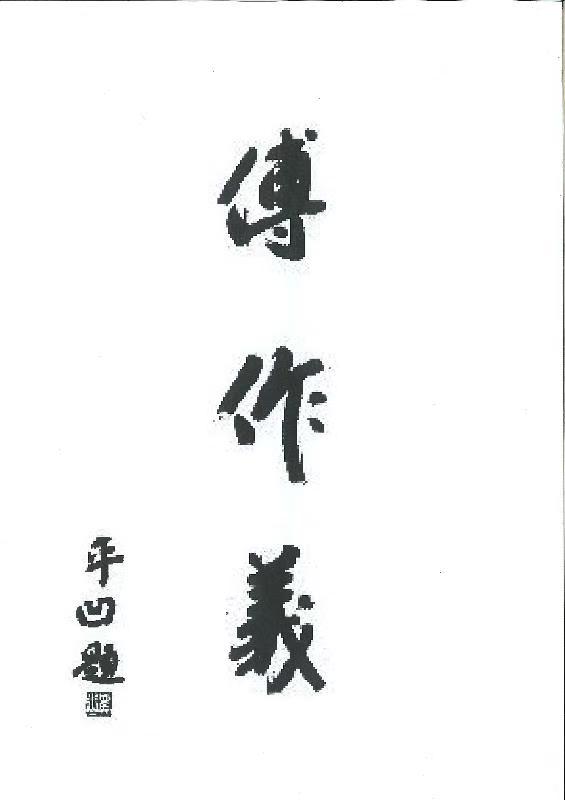 傅作義
平凹題